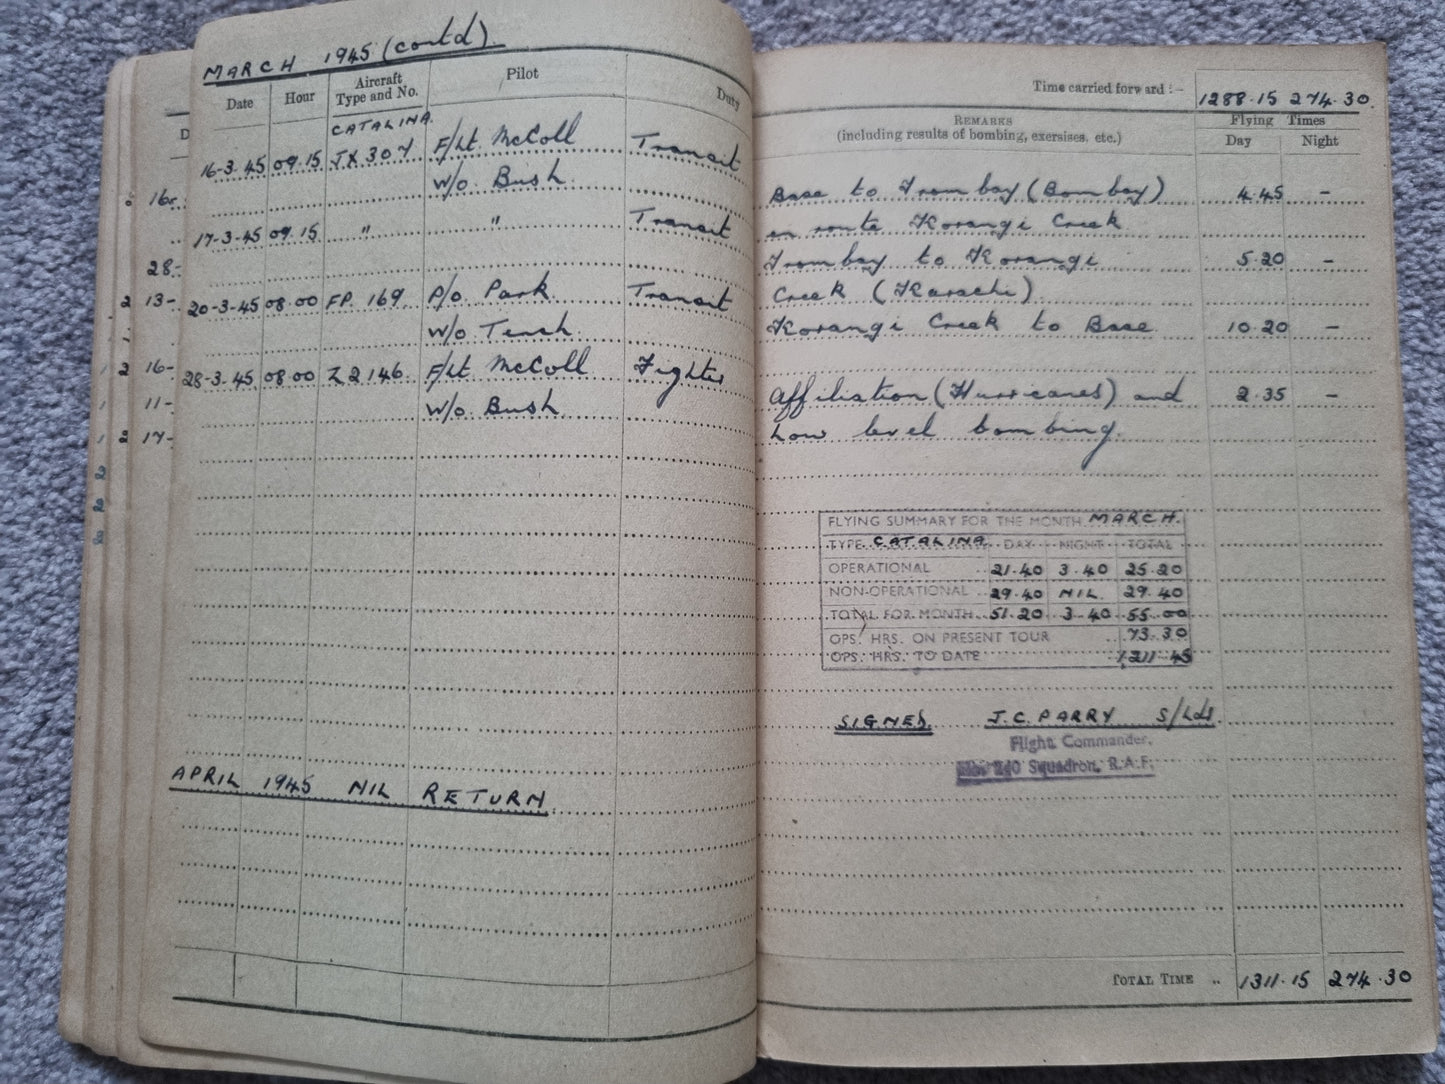 MARCH 1945 (contd)
Date Hour Aircraft Type and No. Pilot Duty
CATALINA.
16-3-45 09.15 JX 307 F/Lt. McColl Transit
W/o Bush.
17-3-45 09.15 " " Transit
20-3-45 08.00 FP. 169 P/o. Park. Transit
W/o Tench.
28-3-45 08.00 Z 2146. F/Lt McColl Fighter
W/o Bush.
APRIL 1945 NIL RETURN.
D
16
28-
2 13-
2 16-
11-
2 17-
2
2
2
Time carried forward :- 1288.15 274.30.
REMARKS Flying Times
(including results of bombing, exersises. etc.) Day Night
Base to Trombay (Bombay) 4.45 -
en route Korangi Creek.
Trombay to Korangi 5.20 -
Creek (Karachi).
Korangi Creek to Base. 10.20 -
Affiliation (Hurricanes) and 2.35 -
Low level bombing.
FLYING SUMMARY FOR THE MONTH MARCH.
TYPE CATALINA DAY NIGHT TOTAL
OPERATIONAL 21.40 3.40 25.20
NON-OPERATIONAL 29.40 NIL. 29.40
TOTAL FOR MONTH 51.20 3.40 55.00
OPS. HRS. ON PRESENT TOUR 73.30
OPS. HRS. TO DATE 1,211.45
SIGNED. J.C. PARRY S/Ldr.
Flight Commander,
240 Squadron, R.A.F.
TOTAL TIME .. 1311.15 274.30